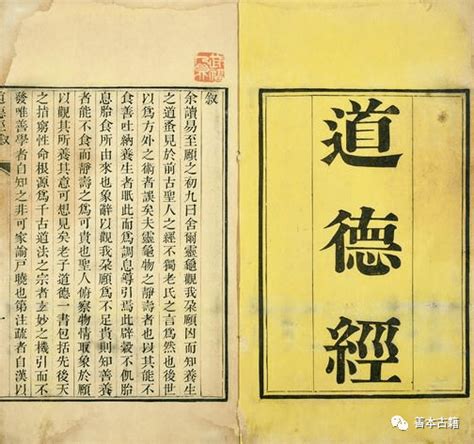 道德經
敘
余讀易至頤之初九曰舍爾靈龜觀我朵頤因而知養生
之道蚤見於前古聖人之經不獨老氏之言爲然也後世
以爲方外之術者誤矣夫靈龜物之靜壽者也以其能不
食善吐納養生者此而爲調息導引爲此辟穀不飢胎
息胎食所由來也象辭以觀我朵頤爲不足貴
者能不食而靜壽之爲可貴也聖人俯察物情取象於頤
以觀其所養其意可想見矣老子道德一書包括先後天
之窮性命根源爲千古道法之宗者玄妙之機引而不
發唯善學者自知之非可家諭戸曉也第注疏者自漢以
道德經敘
善本古籍